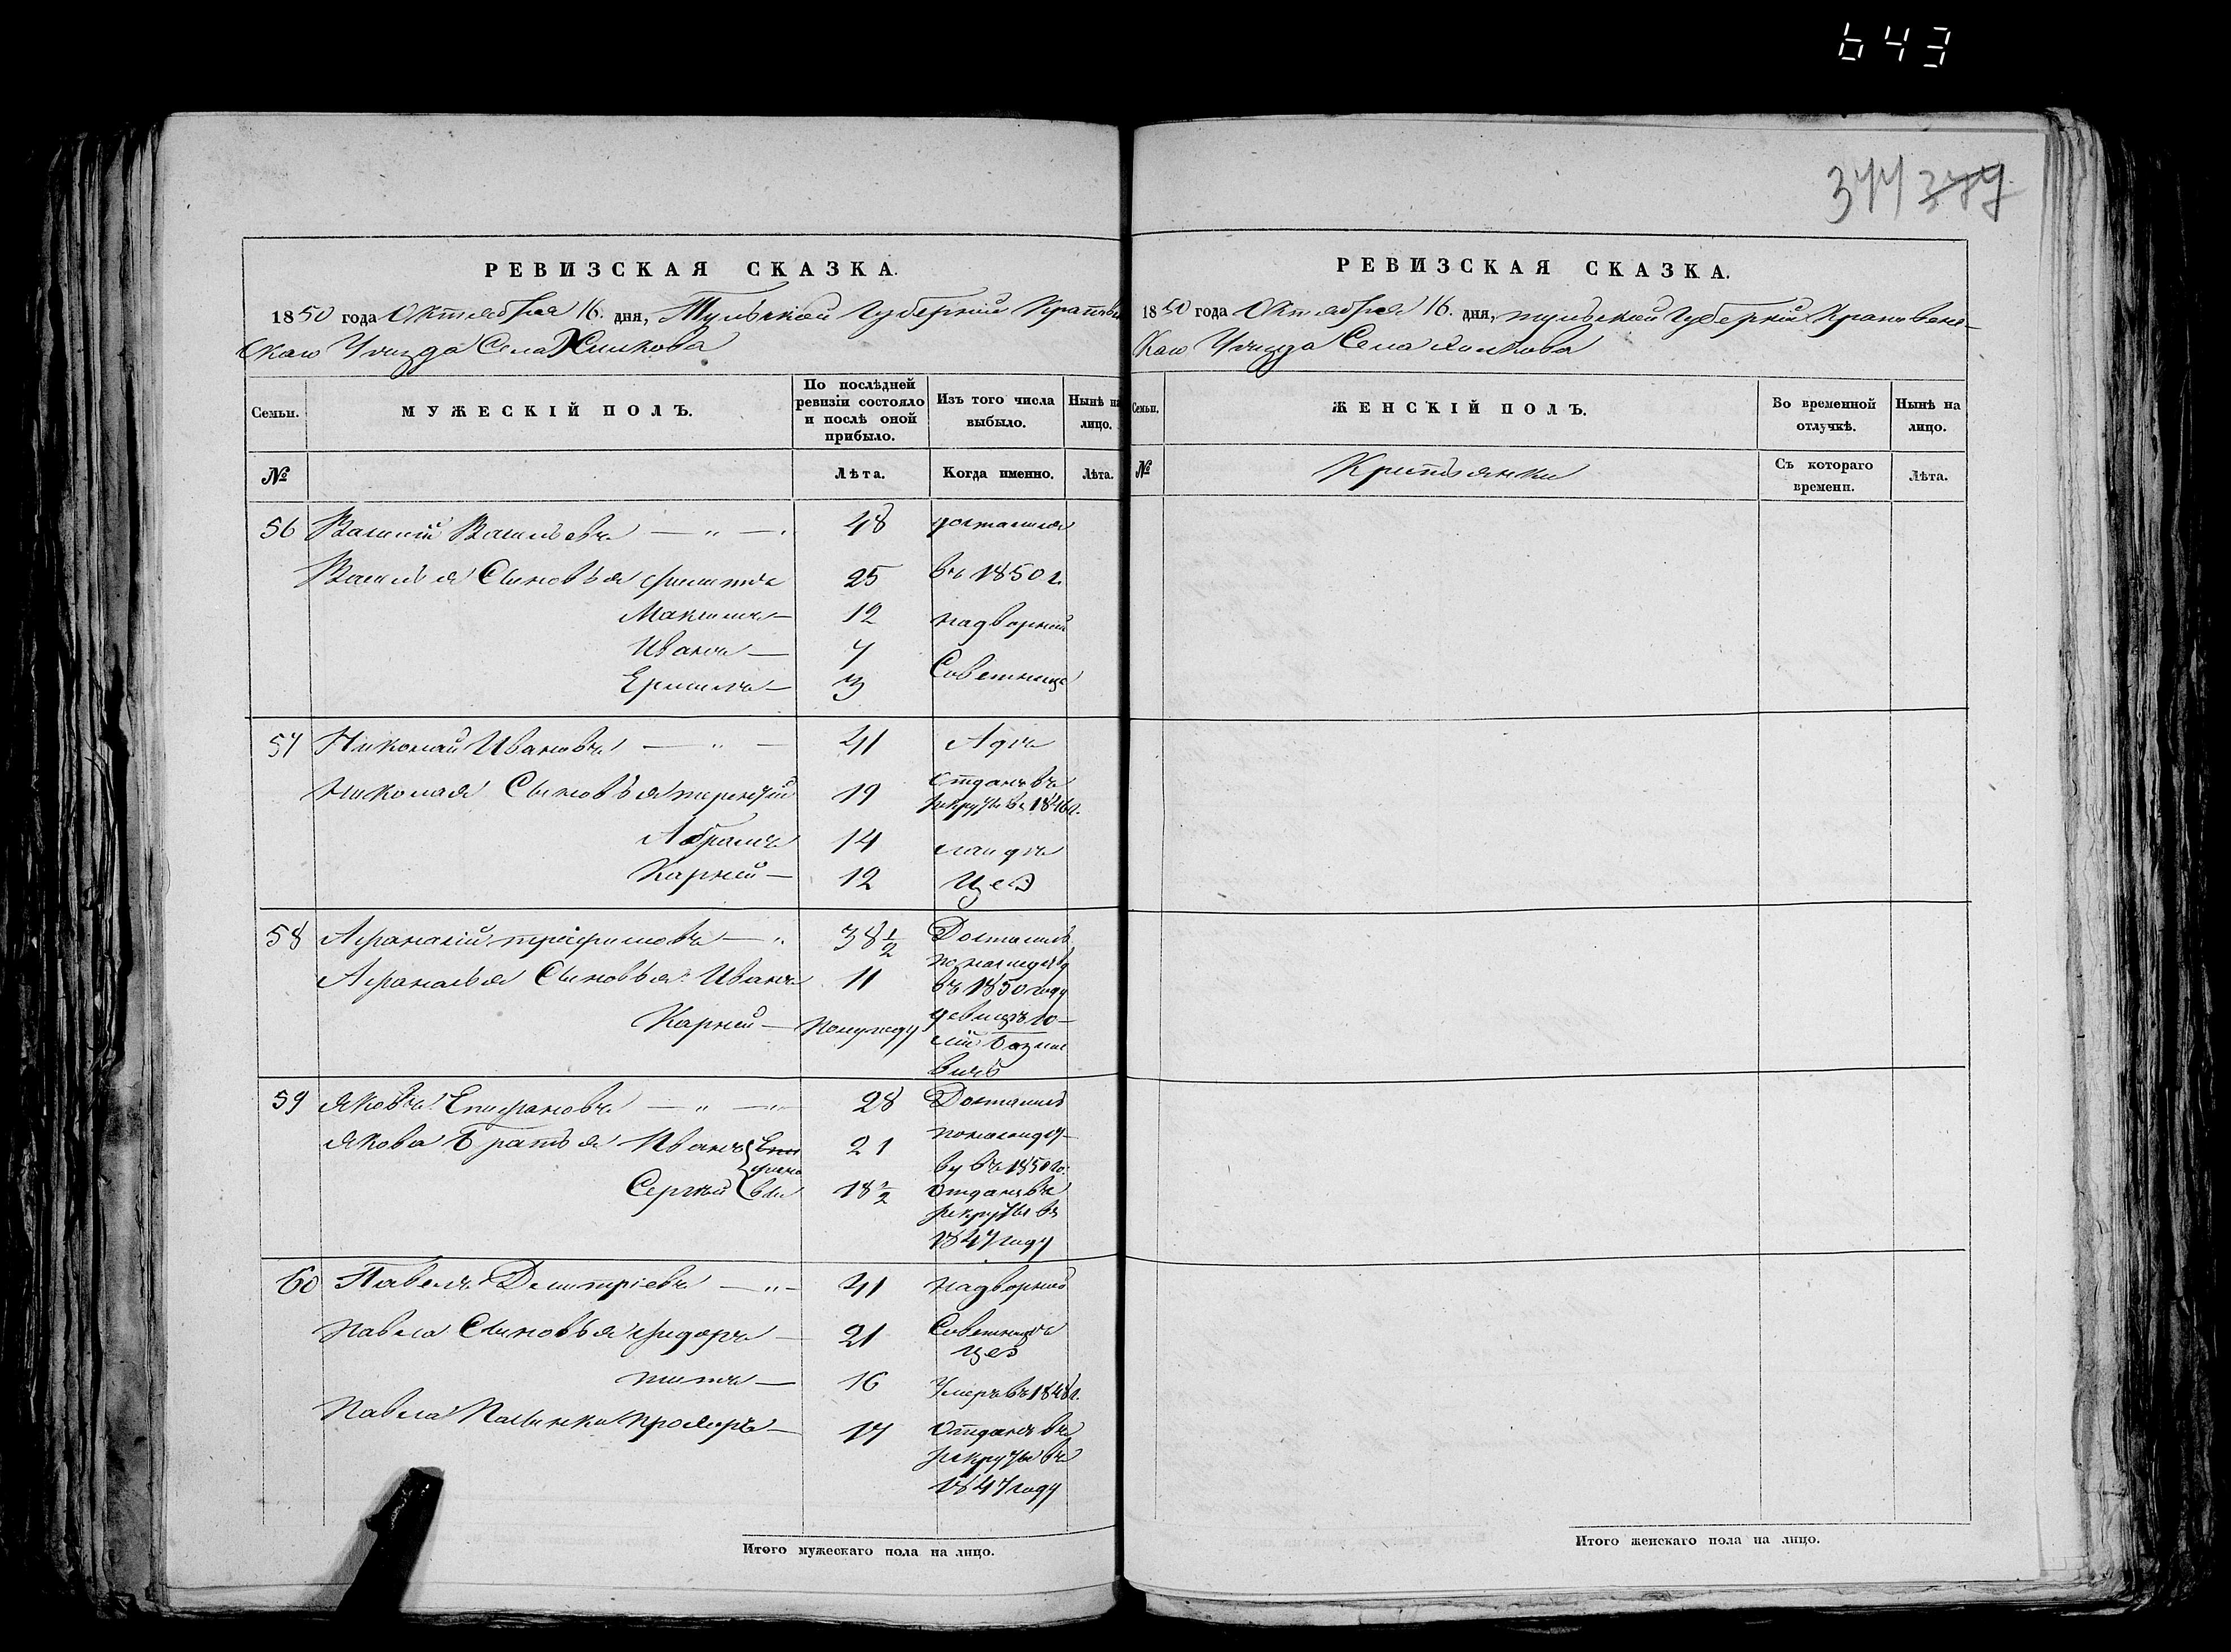 643
344 349
РЕВИЗСКАЯ СКАЗКА.
1850 года Октября 16. дня, Тульской Губерніи Крапивен
скаго Уѣзда Села Хилкова
Семьи.
МУЖЕСКІЙ ПОЛЪ.
По послѣдней ревизіи состояло и послѣ оной прибыло.
Изъ того числа выбыло.
Нынѣ на лицо.
№
Лѣта.
Когда именно.
Лѣта.
56 Василій Васильевъ — „ — 48 достались
Василья Сыновья Филипъ 25 въ 1850 г.
Максимъ — 12 надворной
Иванъ — 7
Ермилъ — 3 Советнице
57 Николай Ивановъ — „ — 41
Николая Сыновья терентій 19 отданъ въ
рекруты въ 1846 г.
Абрамъ 14
Карней — 12
58 Афанасій трафимовъ — „ 38 1/2 Достались
Афанасья Сыновья Иванъ 11 по наследству
въ 1850 году
Карней — полугоду девице
59 Яковъ Епифановъ — „ — 28 Достались
Якова Братья Иванъ Епи 21 по наследст
фано ву въ 1850 го:
Сергей вы 18 1/2 отданъ въ
рекруты въ
1847 году
60 Павелъ Дмитріевъ — „ — 41 надворной
Павла Сыновья Фидоръ — 21 Советнице
титъ — 16 Умеръ въ 1848 г.
Павла Пасынки Прохоръ — 17 отданъ въ
рекруты въ
1847 году
Итого мужескаго пола на лицо.
РЕВИЗСКАЯ СКАЗКА.
1850 года Октября 16. дня, тульской Губерніи Крапивен-
скаго Уѣзда Села Хилкова
Семьи.
ЖЕНСКІЙ ПОЛЪ.
Во временной отлучкѣ.
Нынѣ на лицо.
№
Съ котораго времени.
Лѣта.
Итого женскаго пола на лицо.